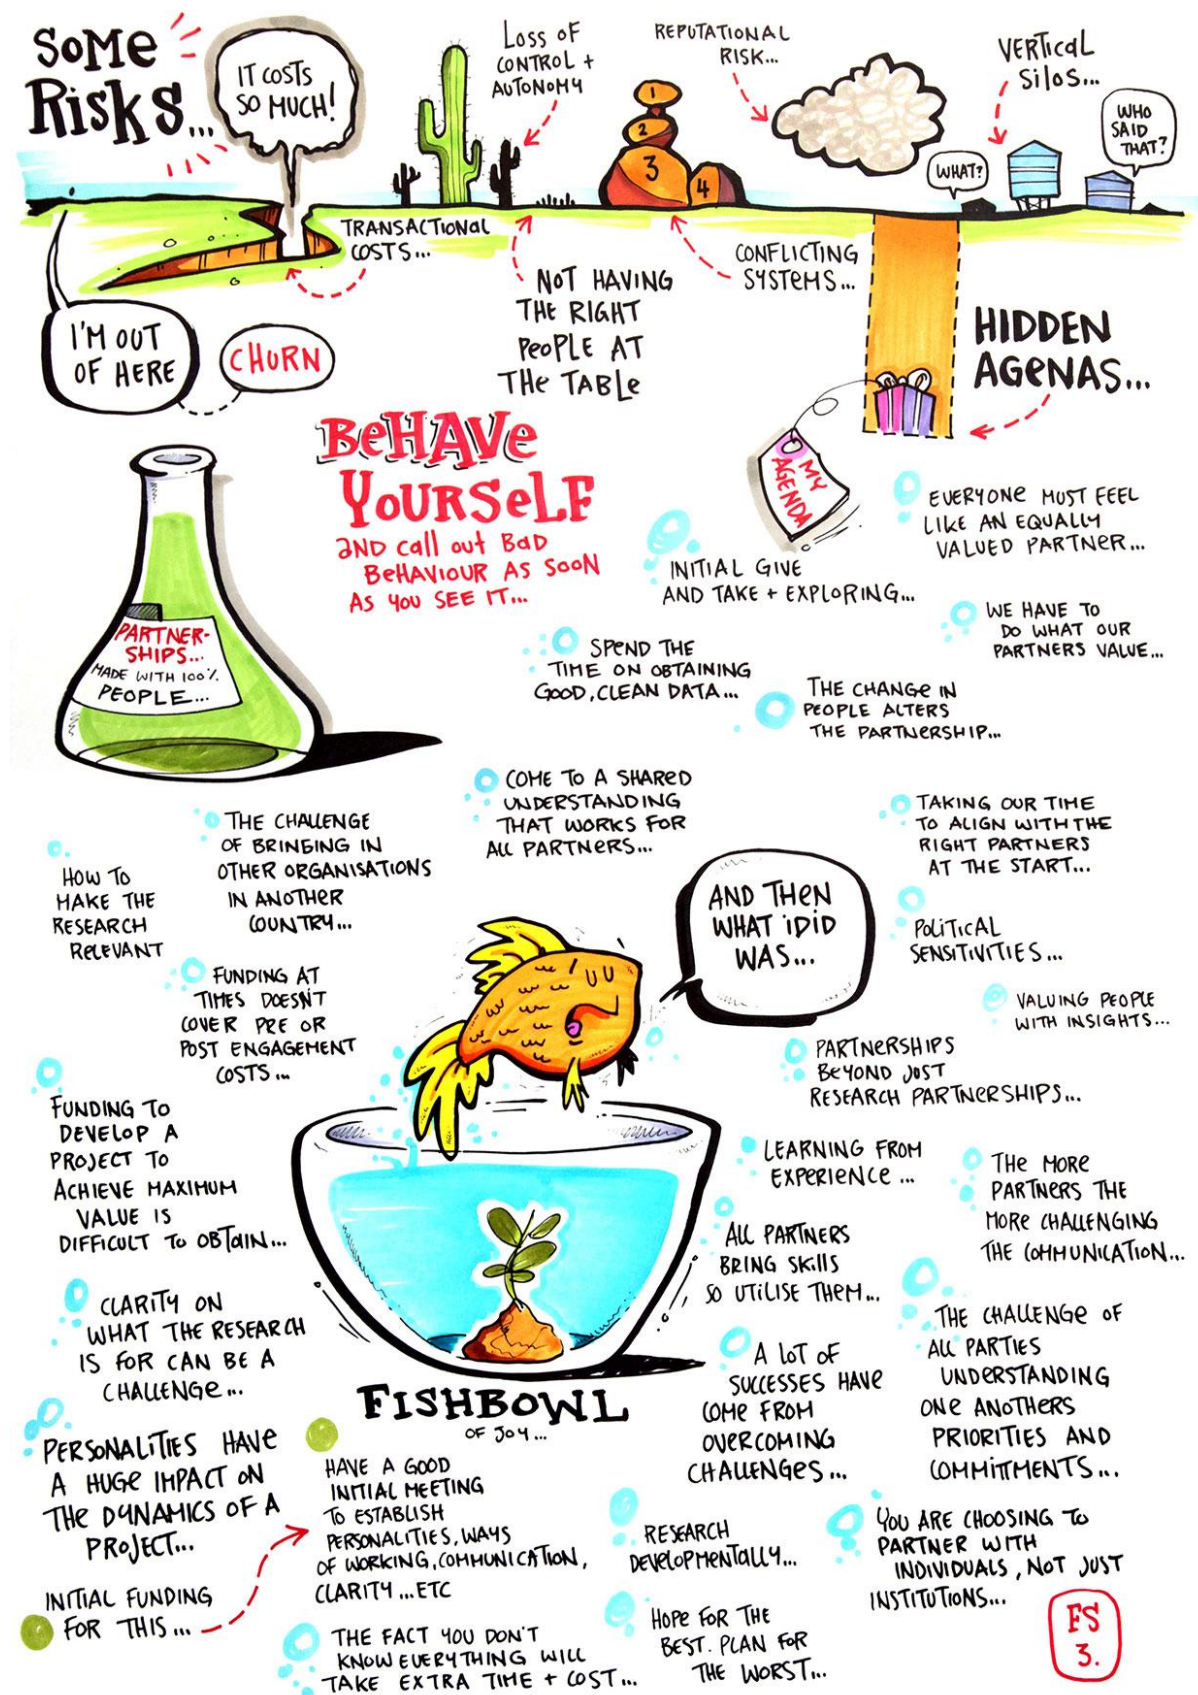 SOME
RISKS...
IT COSTS
SO MUCH!
LOSS OF
CONTROL +
AUTONOMY
REPUTATIONAL
RISK...
VERTICAL
SILOS...
WHO
SAID
THAT?
WHAT?
1
2
3
4
TRANSACTIONAL
COSTS...
NOT HAVING
THE RIGHT
PEOPLE AT
THE TABLE
CONFLICTING
SYSTEMS...
I'M OUT
OF HERE
CHURN
HIDDEN
AGENAS...
MY
AGENDA
BEHAVE
YOURSELF
AND CALL OUT BAD
BEHAVIOUR AS SOON
AS YOU SEE IT...
PARTNER-
SHIPS...
MADE WITH 100%
PEOPLE...
EVERYONE MUST FEEL
LIKE AN EQUALLY
VALUED PARTNER...
INITIAL GIVE
AND TAKE + EXPLORING...
WE HAVE TO
DO WHAT OUR
PARTNERS VALUE...
SPEND THE
TIME ON OBTAINING
GOOD, CLEAN DATA...
THE CHANGE IN
PEOPLE ALTERS
THE PARTNERSHIP...
COME TO A SHARED
UNDERSTANDING
THAT WORKS FOR
ALL PARTNERS...
TAKING OUR TIME
TO ALIGN WITH THE
RIGHT PARTNERS
AT THE START...
THE CHALLENGE
OF BRINGING IN
OTHER ORGANISATIONS
IN ANOTHER
COUNTRY...
HOW TO
MAKE THE
RESEARCH
RELEVANT
AND THEN
WHAT I DID
WAS...
POLITICAL
SENSITIVITIES...
FUNDING AT
TIMES DOESN'T
COVER PRE OR
POST ENGAGEMENT
COSTS...
VALUING PEOPLE
WITH INSIGHTS...
PARTNERSHIPS
BEYOND JUST
RESEARCH PARTNERSHIPS...
FUNDING TO
DEVELOP A
PROJECT TO
ACHIEVE MAXIMUM
VALUE IS
DIFFICULT TO OBTAIN...
LEARNING FROM
EXPERIENCE...
THE MORE
PARTNERS THE
MORE CHALLENGING
THE COMMUNICATION...
ALL PARTNERS
BRING SKILLS
SO UTILISE THEM...
CLARITY ON
WHAT THE RESEARCH
IS FOR CAN BE A
CHALLENGE...
THE CHALLENGE OF
ALL PARTIES
UNDERSTANDING
ONE ANOTHERS
PRIORITIES AND
COMMITTMENTS...
A LOT OF
SUCCESSES HAVE
COME FROM
OVERCOMING
CHALLENGES...
FISHBOWL
OF JOY...
PERSONALITIES HAVE
A HUGE IMPACT ON
THE DYNAMICS OF A
PROJECT...
HAVE A GOOD
INITIAL MEETING
TO ESTABLISH
PERSONALITIES, WAYS
OF WORKING, COMMUNICATION,
CLARITY...ETC
INITIAL FUNDING
FOR THIS...
RESEARCH
DEVELOPMENTALLY...
YOU ARE CHOOSING TO
PARTNER WITH
INDIVIDUALS, NOT JUST
INSTITUTIONS...
THE FACT YOU DON'T
KNOW EVERYTHING WILL
TAKE EXTRA TIME + COST...
HOPE FOR THE
BEST. PLAN FOR
THE WORST...
FS
3.